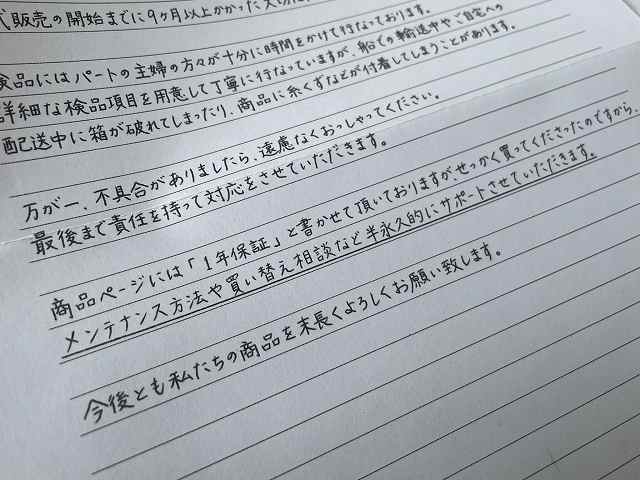 販売の開始までに9ヶ月以上かかった
検品にはパートの主婦の方々が十分に時間をかけて行なっております。
詳細な検品項目を用意して丁寧に行なっていますが、船での輸送中やご自宅への
配送中に箱が破れてしまったり、商品に糸くずなどが付着してしまうことがあります。
万が一、不具合がありましたら、遠慮なくおっしゃってください。
最後まで責任を持って対応をさせていただきます。
商品ページには「1年保証」と書かせて頂いておりますがせっかく買ってくださったのですから、
メンテナンス方法や買い替え相談など半永久的にサポートさせていただきます。
今後とも私たちの商品を末長くよろしくお願い致します。